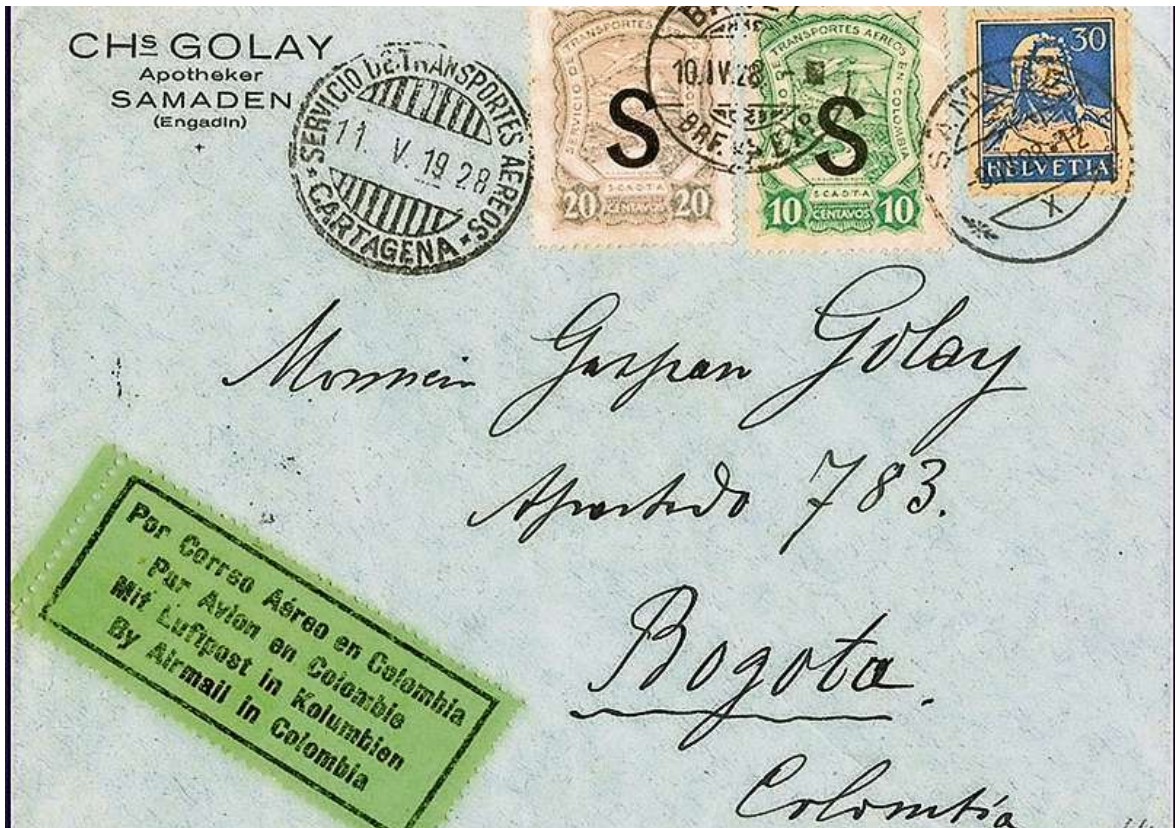 CHs GOLAY
Apotheker
SAMADEN
(Engadin)
SERVICIO DE TRANSPORTES AEREOS
11. V. 19 28
CARTAGENA
SERVICIO DE TRANSPORTES AEREOS EN COLOMBIA
S
S.C.A.D.T.A
20 CENTAVOS 20
10.IV.28
BRF. EXP.
SERVICIO DE TRANSPORTES AEREOS EN COLOMBIA
S
S.C.A.D.T.A
10 CENTAVOS 10
30
HELVETIA
Monsieur Gaspar Golay
Apartado 783.
Bogota.
Colombia
Por Correo Aéreo en Colombia
Par Avion en Colombie
Mit Luftpost in Kolumbien
By Airmail in Colombia